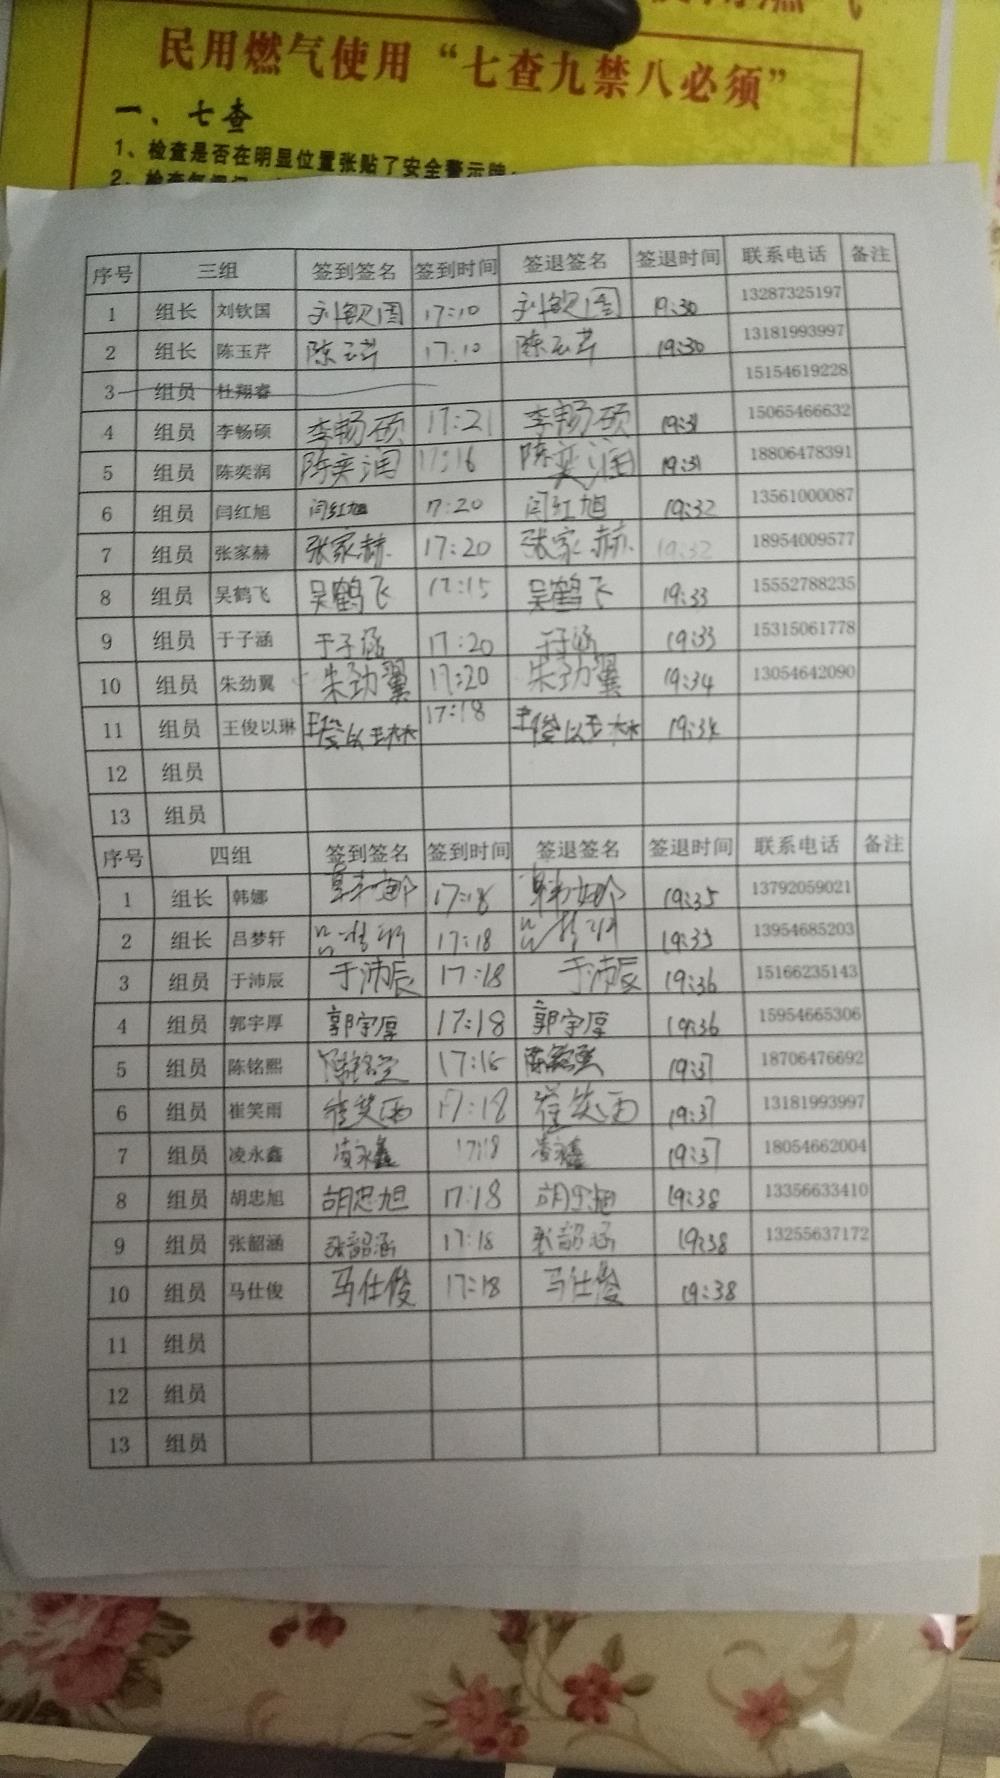 民用燃气使用“七查九禁八必须”
一、七查
1、检查是否在明显位置张贴了安全警示牌
2、检查气
序号 三组 签到签名 签到时间 签退签名 签退时间 联系电话 备注
1 组长 刘钦国 刘钦国 17:10 刘钦国 19:30 13287325197
2 组长 陈玉芹 陈玉芹 17:10 陈玉芹 19:30 13181993997
3 组员 杜翔睿 15154619228
4 组员 李畅硕 李畅硕 17:21 李畅硕 19:31 15065466632
5 组员 陈奕润 陈奕润 17:16 陈奕润 19:31 18806478391
6 组员 闫红旭 闫红旭 17:20 闫红旭 19:32 13561000087
7 组员 张家赫 张家赫 17:20 张家赫 19:32 18954009577
8 组员 吴鹤飞 吴鹤飞 17:15 吴鹤飞 19:33 15552788235
9 组员 于子涵 于子涵 17:20 于子涵 19:33 15315061778
10 组员 朱劲翼 朱劲翼 17:20 朱劲翼 19:34 13054642090
11 组员 王俊以琳 王俊以琳 17:18 王俊以琳 19:34
12 组员
13 组员
序号 四组 签到签名 签到时间 签退签名 签退时间 联系电话 备注
1 组长 韩娜 韩娜 17:18 韩娜 19:35 13792059021
2 组长 吕梦轩 17:18 19:35 13954685203
3 组员 于沛辰 于沛辰 17:18 于沛辰 19:36 15166235143
4 组员 郭宇厚 郭宇厚 17:18 郭宇厚 19:36 15954665306
5 组员 陈铭熙 陈铭熙 17:18 陈铭熙 19:37 18706476692
6 组员 崔笑雨 崔笑雨 17:18 崔笑雨 19:37 13181993997
7 组员 凌永鑫 凌永鑫 17:18 凌永鑫 19:37 18054662004
8 组员 胡忠旭 胡忠旭 17:18 胡忠旭 19:38 13356633410
9 组员 张韶涵 张韶涵 17:18 张韶涵 19:38 13255637172
10 组员 马仕俊 马仕俊 17:18 马仕俊 19:38
11 组员
12 组员
13 组员